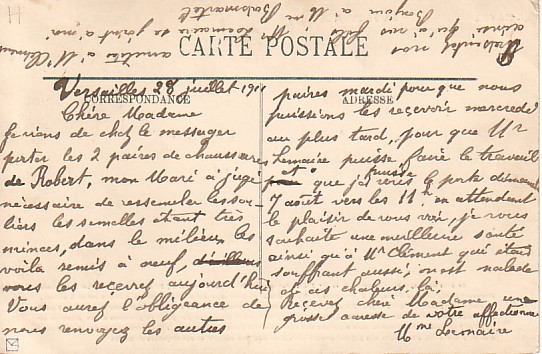 CARTE POSTALE
CORRESPONDANCE
ADRESSE
Versailles 28 juillet 1911
Chère Madame
je viens de chez le messager
porter les 2 paires de chaussures
de Robert, mon Mari a jugé
nécessaire de ressemeler les sou-
liers les semelles étant très
minces, dans le milieu, les
voila remis à neuf,
vous les recevez aujourd'hui
Vous aurez l'obligeance de
nous renvoyez les autres
paires mardi pour que nous
puissions les recevoir mercredi
au plus tard, pour que Mr
Lemaire puisse faire le travail
et que je puisse vous le porte dimanche
7 août vers les 11h en attendant
le plaisir de vous voir, je vous
souhaite une meilleure santé
ainsi qu'à Mr Clément qui étais
souffrant aussi, on est malade
de ces chaleurs là,
Recevez chère Madame une
grosse caresse de votre affectionnée
Mme Lemaire
Présentez nos
amitiés à Mr Clément
ainsi qu'à vos fils, Mr Lemaire se joint à moi
Bonjour à Mme